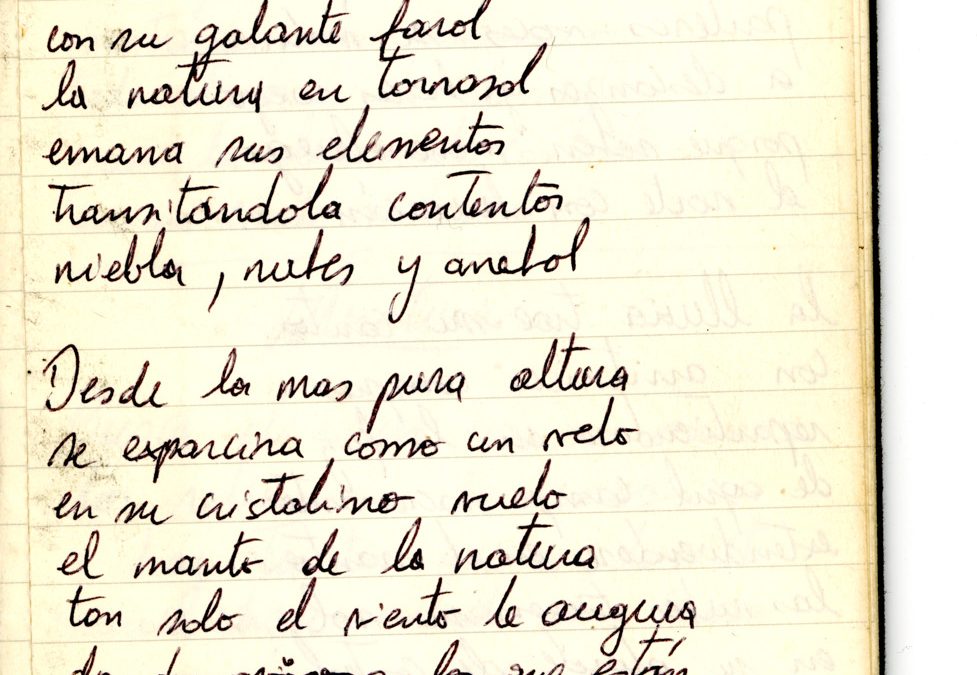 con su galante farol
la natura en tornasol
emana sus elementos
transitándola contentos
niebla, nubes y arrebol
Desde la mas pura altura
se exparcira como un velo
en su cristalino vuelo
el manto de la natura
tan solo el viento le augura